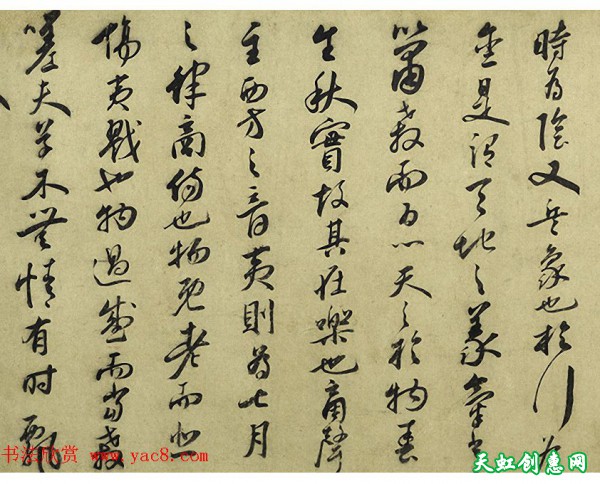 時為陰又兵象也於行為
金是謂天地之義氣常
以肅殺而為心天之於物春
生秋實故其在樂也商聲
主西方之音夷則為七月
之律商傷也物既老而悲
傷夷戮也物過盛而當殺
嗟夫草木無情有时飄
书法欣赏 www.yac8.com
天虹创意网